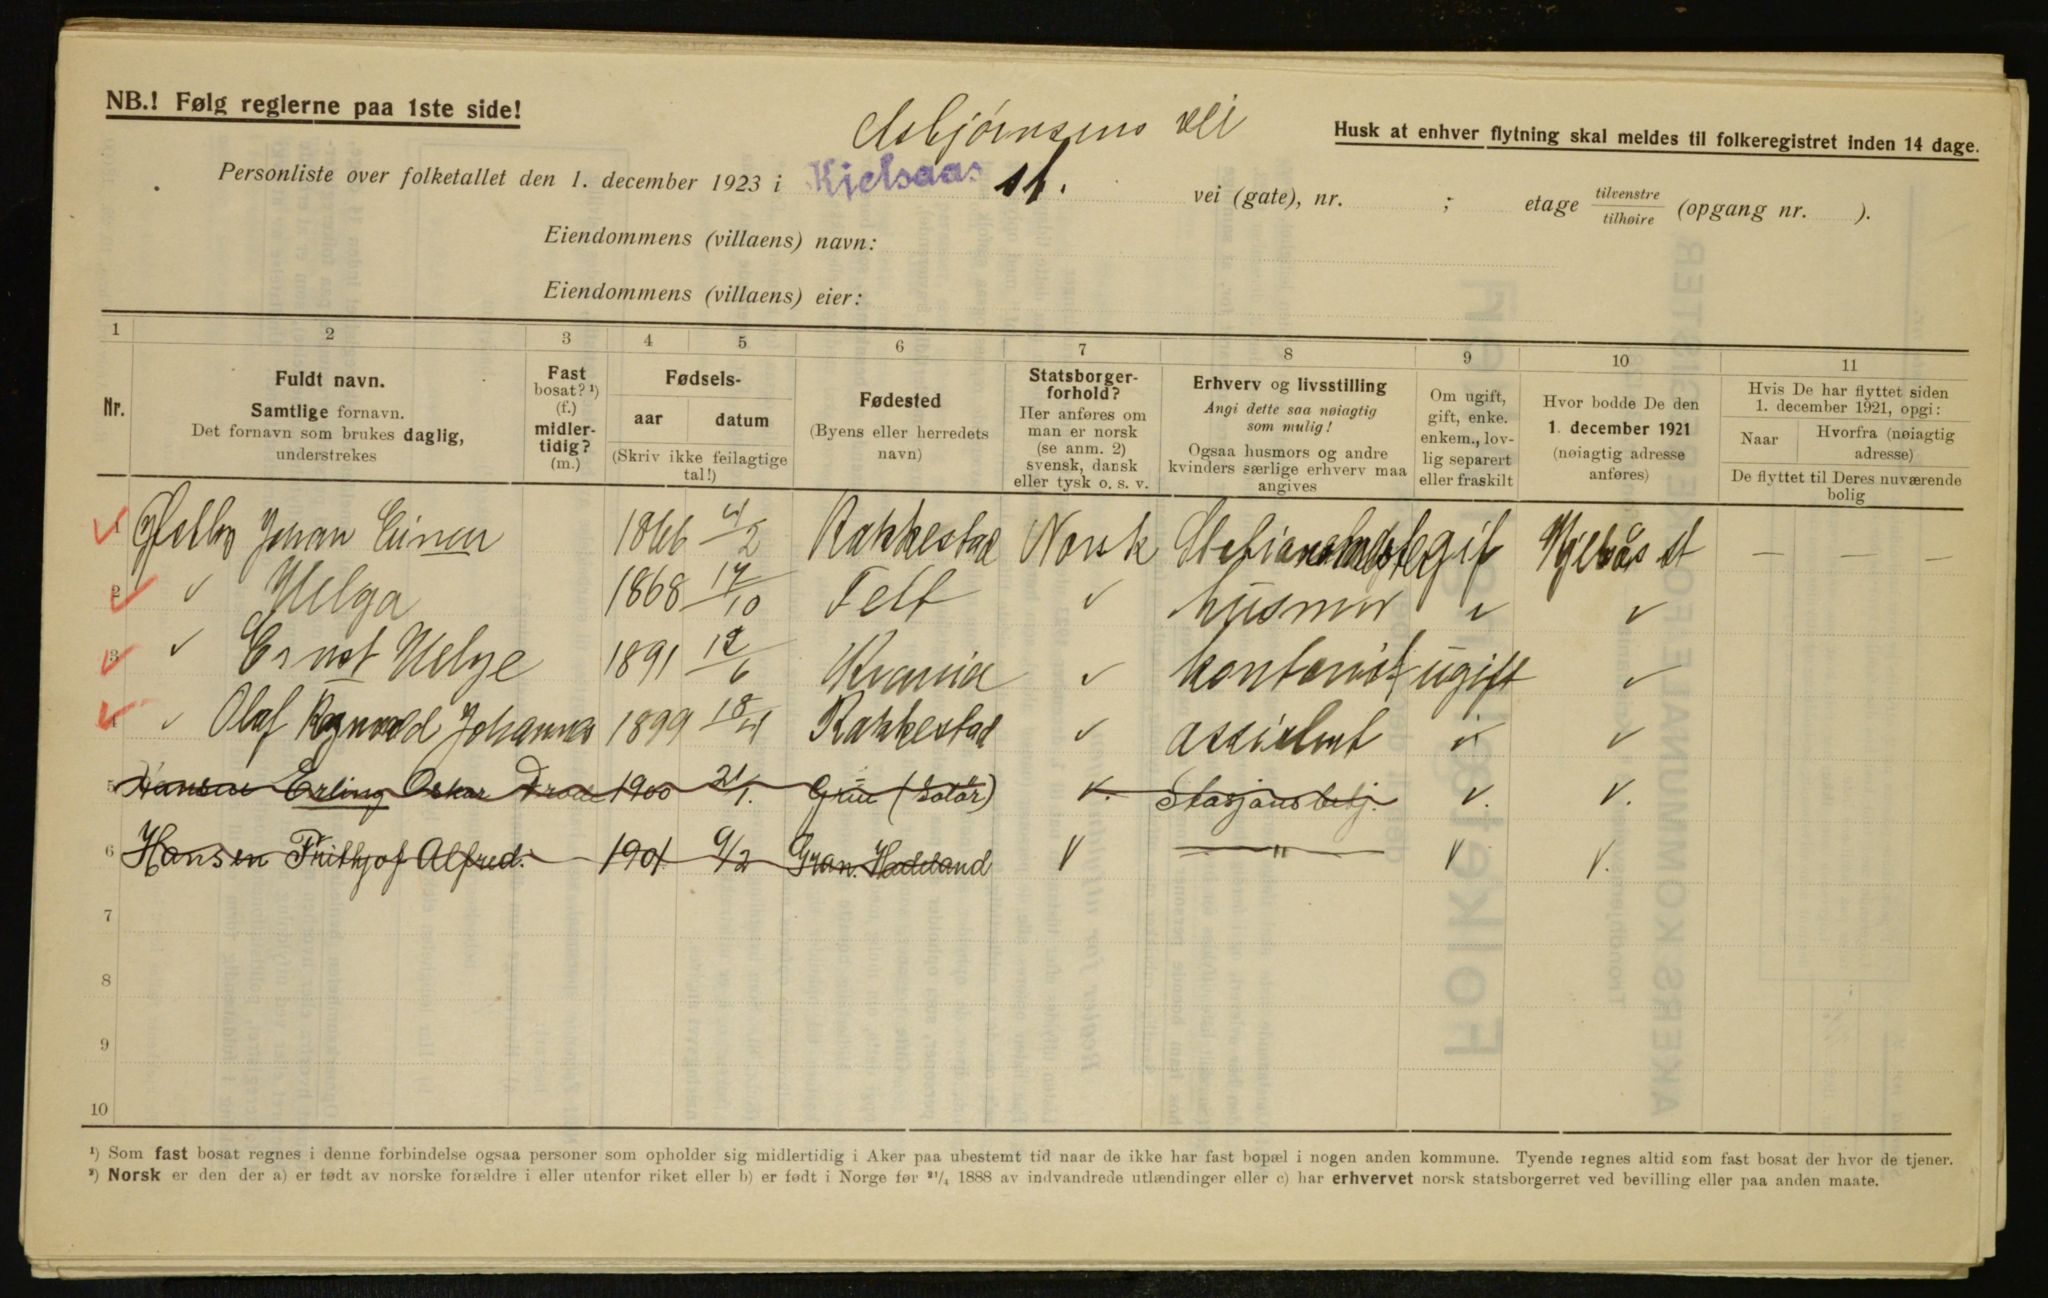 NB.! Følg reglerne paa 1ste side!
Asbjørnsens vei
Husk at enhver flytning skal meldes til folkeregistret inden 14 dage.
Personliste over folketallet den 1. december 1923 i Kjelsaas st. vei (gate), nr. ; etage tilvenstre tilhøire (opgang nr. ).
Eiendommens (villaens) navn:
Eiendommens (villaens) eier:
1 2 3 4 5 6 7 8 9 10 11
Nr.
Fuldt navn.
Samtlige fornavn.
Det fornavn som brukes daglig,
understrekes
Fast
bosat? ¹)
(f.)
midler-
tidig?
(m.)
Fødsels-
aar datum
(Skriv ikke feilagtige
tal!)
Fødested
(Byens eller herredets
navn)
Statsborger-
forhold?
Her anføres om
man er norsk
(se anm. 2)
svensk, dansk
eller tysk o. s. v.
Erhverv og livsstilling
Angi dette saa nøiagtig
som mulig!
Ogsaa husmors og andre
kvinders særlige erhverv maa
angives
Om ugift,
gift, enke.
enkem., lov-
lig separert
eller fraskilt
Hvor bodde De den
1. december 1921
(nøiagtig adresse
anføres)
Hvis De har flyttet siden
1. december 1921, opgi:
Naar Hvorfra (nøiagtig
adresse)
De flyttet til Deres nuværende
bolig
1 Johan Einar 1866 Rakkestad Norsk gift st — — —
2 " Helga 1868 17/10 " husmor " "
3 " Ernst Helge 1891 " kontorist ugift "
4 " Olaf Johannes 1899 18/4 Rakkestad " assistent " "
5 Hansen Erling Oskar 1900 21/1. Grue (Solør) " Stasjonsbetj. " "
6 Hansen Frithjof Alfred. 1901 9/2 Gran. Hadeland " " " "
7
8
9
10
¹) Som fast bosat regnes i denne forbindelse ogsaa personer som opholder sig midlertidig i Aker paa ubestemt tid naar de ikke har fast bopæl i nogen anden kommune. Tyende regnes altid som fast bosat der hvor de tjener.
²) Norsk er den der a) er født av norske forældre i eller utenfor riket eller b) er født i Norge før ²¹/₄ 1888 av indvandrede utlændinger eller c) har erhvervet norsk statsborgerret ved bevilling eller paa anden maate.